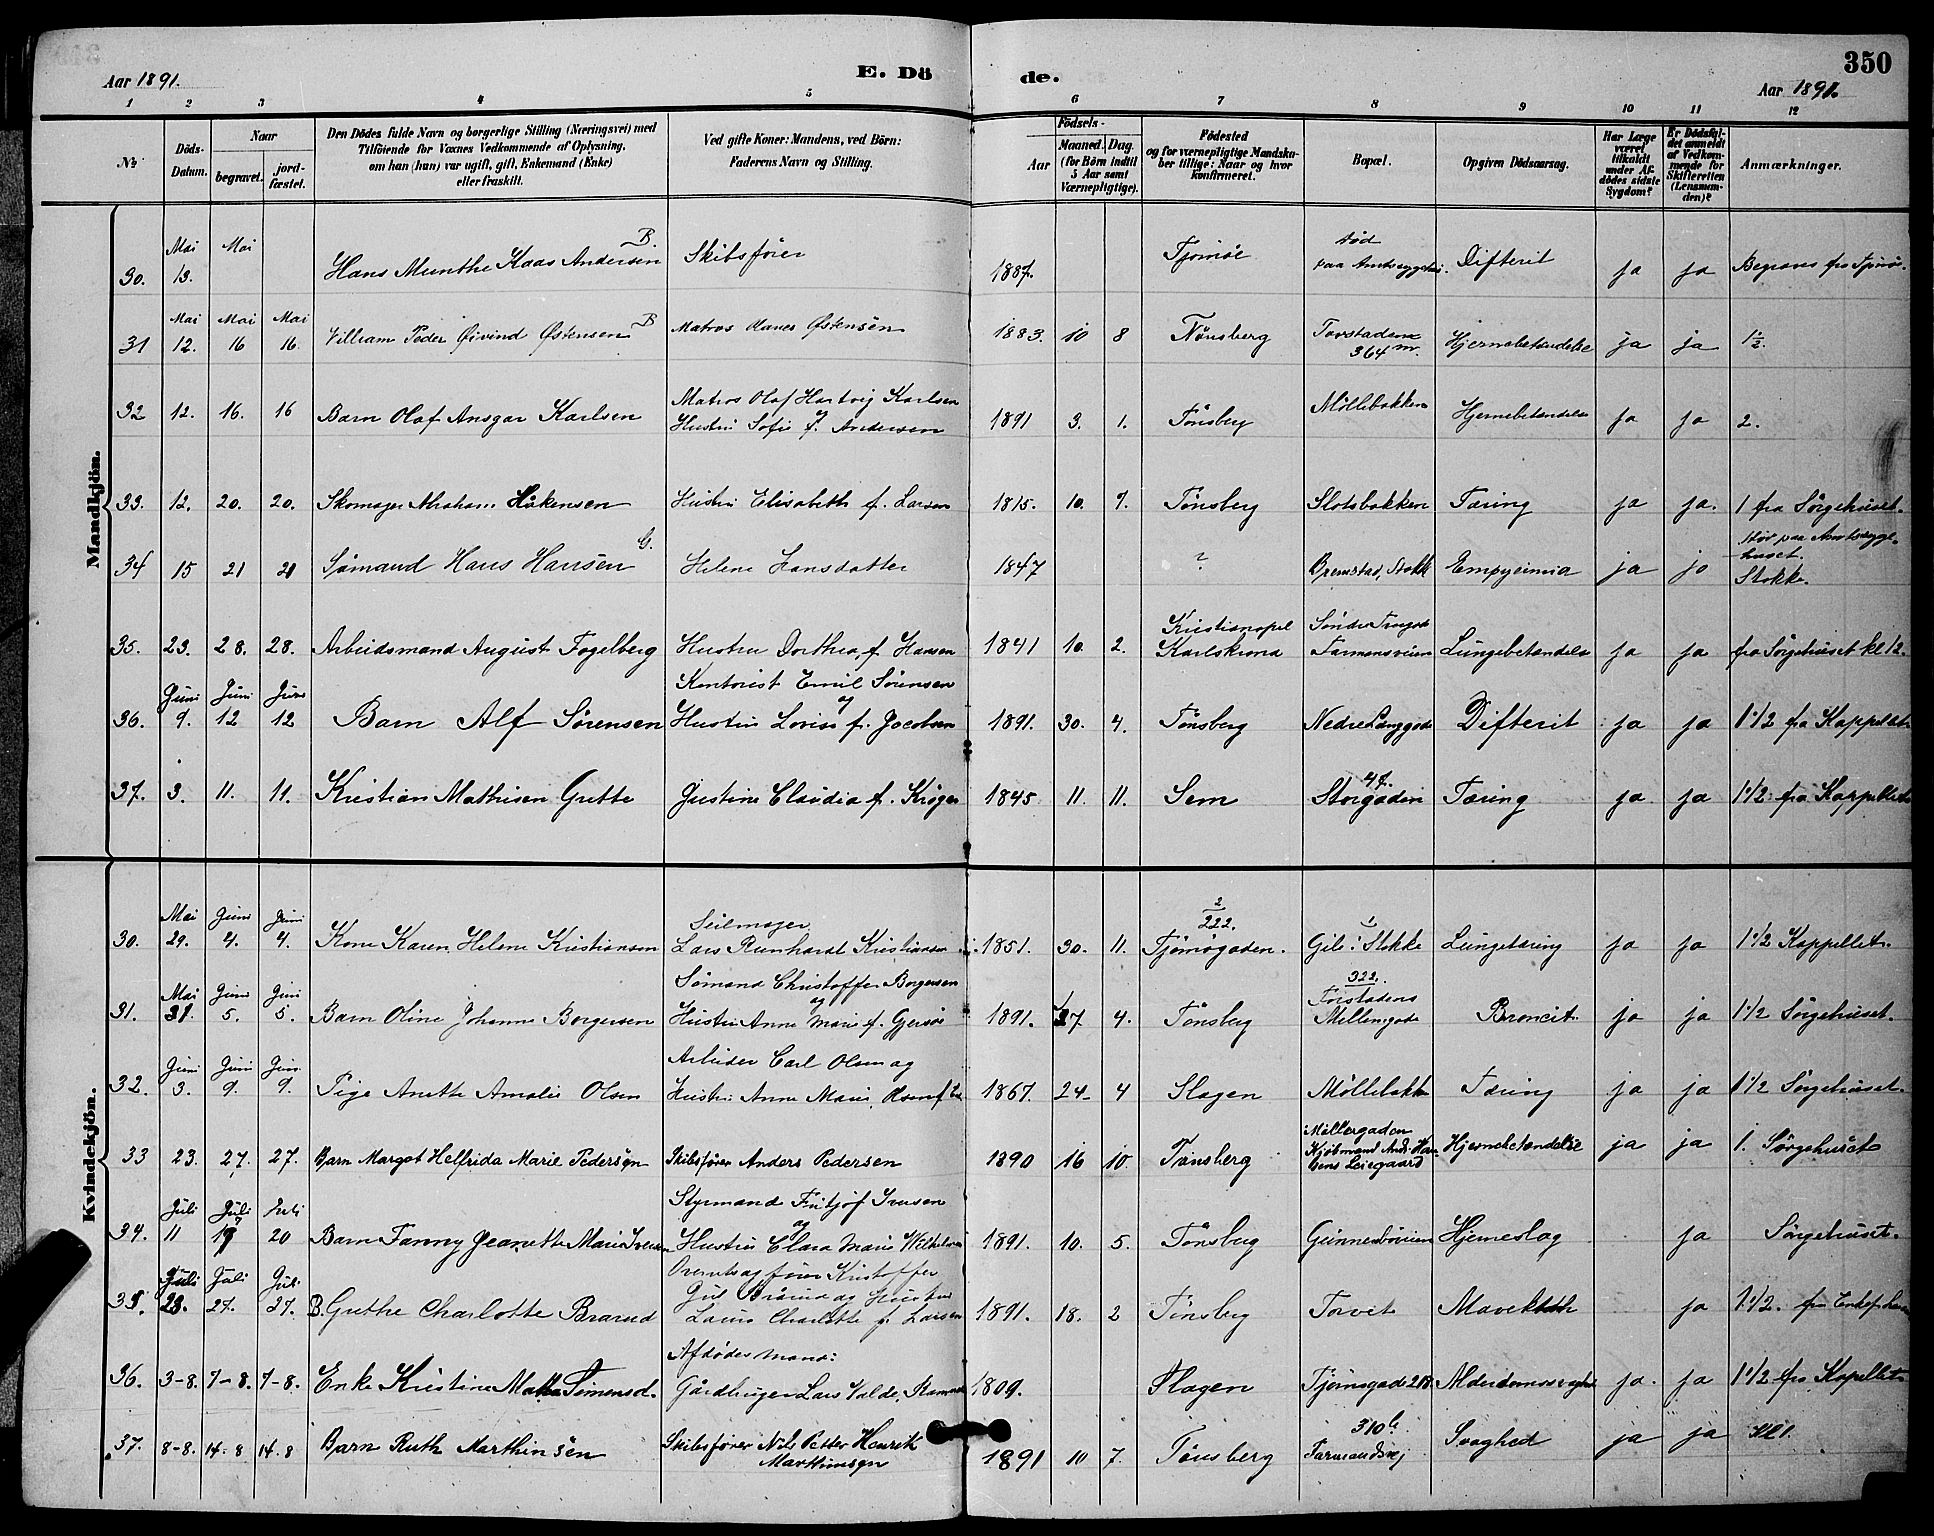 350
Aar 1891.
E. Dö de.
Aar 1891.
1 2 3 4 5 6 7 8 9 10 11 12
No
Döds-Datum.
Naar
begravet.
jordfæstet.
Den Dödes fulde Navn og borgerlige Stilling (Næringsvei) med
Tilföiende for Voxnes Vedkommende af Oplysning,
om han (hun) var ugift, gift, Enkemand (Enke)
eller fraskilt.
Ved gifte Koner: Mandens, ved Börn:
Faderens Navn og Stilling.
Födsels-
Aar
Maaned. Dag.
(for Börn indtil
5 Aar samt
Værnepligtige).
Födested
og for værnepligtige Mandska-
ber tillige: Naar og hvor
konfirmeret.
Bopæl.
Opgiven Dödsaarsag.
Har Læge
været
tilkaldt
under Af-
dödes sidste
Sygdom?
Er Dödsfal-
det anmeldt
af Vedkom-
mende for
Skifteretten
(Lensman-
den)?
Anmærkninger.
Mandkjön.
30. Mai 13. Mai Hans Munthe Kaas Andersen B. Skibsfører 1887. Tjømøe død paa Amtssygehus. Difterit ja ja Begraves fra Tjømø.
31 Mai 12. Mai 16 Mai 16. William Peder Øivind Østensen B Matros Hanes Østensen 1883. 10 8 Tønsberg Forstadens 364 m. Hjernebetændelse ja ja 1½.
32 12. 16. 16 Barn Olaf Ansgar Karlsen Matros Olaf Hartvig Karlsen og Hustru Sofie f. Andersen 1891 3. 1. Tønsberg Møllebakken Hjernebetændelse ja ja 2.
33. 12. 20. 20. Skomager Abraham Håkensen Hustru Elisabeth f. Larsen 1815. 10. 9. Tønsberg Slotsbakken Tæring ja ja. 1 fra Sørgehuset.
34 15 21 21 Sømand Hans Hansen G. Helene Hansdatter 1847 ? Bremstad, Stokke Empyeimia ja ja død paa Amtssygehuset. Stokke.
35. 23. 28. 28. Arbeidsmand August Fogelberg Hustru Dorthea f. Hansen 1841 10. 2. Kristianopel Karlskrona Søndre Farmansveien Lungebetændelse ja ja fra Sørgehuset kl 12.
36. Juni 9. Juni 12 Juni 12 Barn Alf Sørensen Kontorist Emil Sørensen og Hustru Lovise f. Jacobsen 1891. 30. 4. Tønsberg Nedre Langgade Difterit ja ja 1 1/2 fra Kappellet
37. 3. 11. 11. Kristian Mathisen Grette Justine Claudia f. Krøger 1845 11. 11. Sem 47. Storgaden Tæring ja ja 1 1/2 fra Kappellet
Kvindekjön.
30. Mai 29. Juni 4. Juni 4. Kone Karen Helene Kristiansen Seilmager Lars Reinhardt Kristiansen 1851. 30. 11. 2/222. Tjømøgaden. Gile i Stokke Lungetæring ja ja 1 1/2 Kappellet.
31. Mai 31. Juni 5. Juni 5. Barn Oline Johanne Borgersen Sømand Christoffer Borgersen og Hustru Anne Marie f. Gjersøe 1891. 27 4. Tønsberg 322. Forstadens Møllengade Broncit. ja ja 1 1/2 Sørgehuset.
32. Juni 3. Juni 9. Juni 9. Pige Anette Amalie Olsen Arbeider Carl Olsen og Hustru Anne Marie Olsen f. 1867. 24. 4 Slagen Møllebakken Tæring ja ja 1 1/2 Sørgehuset.
33 23. 27. 27. Barn Margot Helfrida Marie Pedersen Skibsfører Anders Pedersen 1890 16 10. Tønsberg Møllergaden Kjøbmand And. Hansens Leiegaard Hjernebetændelse ja ja 1. Sørgehuset
34. Juli 11 Juli 19 Juli 20 Barn Fanny Jeanette Marie Iversen Styrmand Fritjof Iversen og Hustru Clara Marie Wilhelmsen 1891. 10. 5. Tønsberg Gunnersbøveien Hjerneslag ja Sørgehuset.
35. Juli 23. Juli 27. Juli 27. B. Grethe Charlotte Braarud fører Kristoffer Jul. Braarud og Hustru Laura Charlotte f. Larsen 1891. 18. 2 Tønsberg Torvet Mavekatarrh ja 1 1/2. fra
36. 3-8. 7-8. 7-8. Enke Kristine Marthea Simensd. Afdødes mand: Gårdbruger Lars Valde, Ramnæs 1809. Slagen Tjømøgade 218 Alderdomssvaghed ja. ja 1 1/2 fra Kapellet
37. 8-8. 14-8 14-8 Barn Ruth Marthinsen Skibsfører Nils Petter Henrik Marthinsen 1891 10 7. Tønsberg 310 b. Farmandsvej Svaghed ja ja Kl 1.